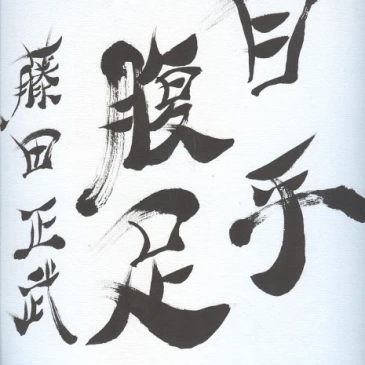 目手
腹足
藤田正武